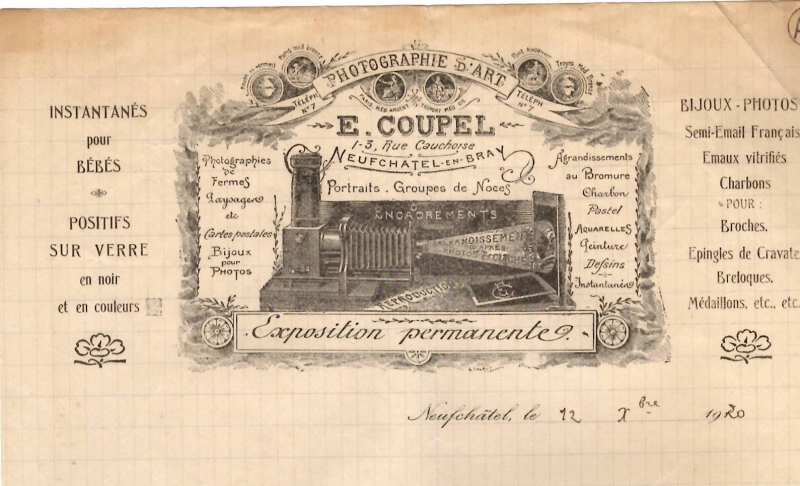 INSTANTANÉS
pour
BÉBÉS
POSITIFS
SUR VERRE
en noir
et en couleurs
PHOTOGRAPHIE D'ART
TÉLÉPH.
N° 7
PARIS MED. ARGENT
TREPORT MED. OR
TÉLÉPH.
N° 7
E. COUPEL
1-3, Rue Cauchoise
NEUFCHATEL-EN-BRAY
Portraits. Groupes de Noces
&
ENCADREMENTS
Photographies
de
Fermes
Paysages
etc
Cartes postales
Bijoux
pour
PHOTOS
AGRANDISSEMENTS
D'APRÈS
PHOTOS & CLICHÉS
REPRODUCTIONS
Agrandissements
au Bromure
Charbon
Pastel
AQUARELLES
Peinture
Dessins
Instantanés
Exposition permanente.
BIJOUX-PHOTOS
Semi-Email Français
Emaux vitrifiés
Charbons
POUR :
Broches.
Epingles de Cravate
Breloques.
Médaillons, etc., etc.
Neufchâtel, le 12 Xbre 1920